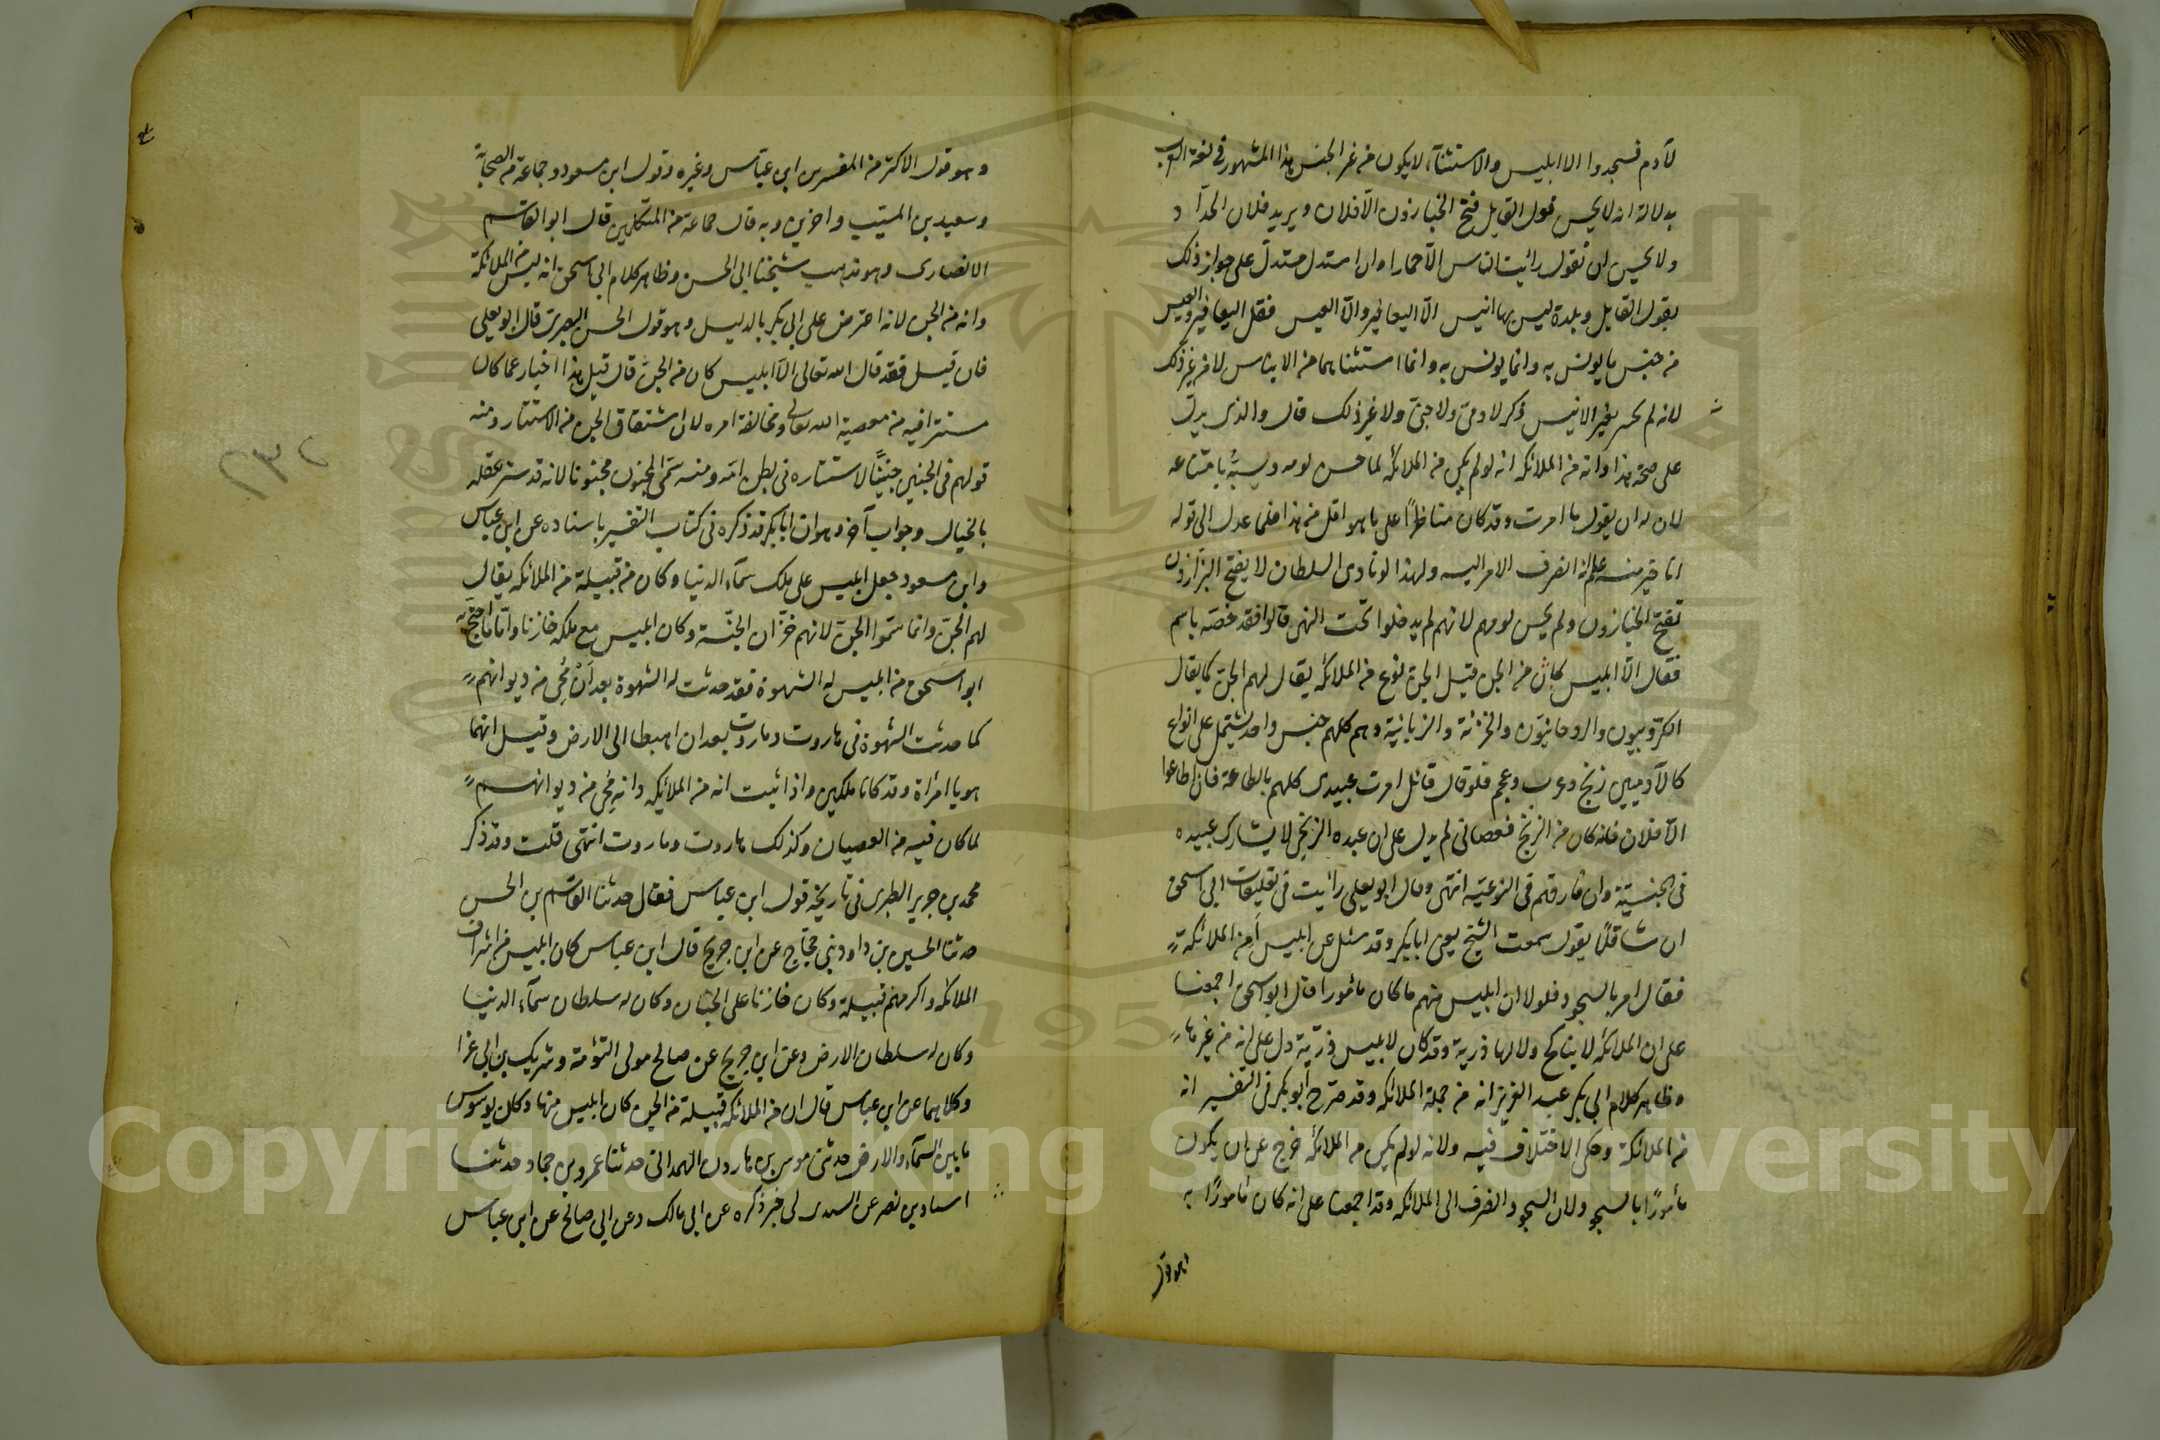 لآدم فسجدوا الا ابليس والاستثناء لايكون من غير الجنس هذا المشهور في لغة العرب
بدلالة انه لايحسن قول القايل فتح الخبازون الا فلان ويريد فلان الحداد
ولا يحسن ان تقول رايت الناس الا حمارا وان استدل مستدل على جواز ذلك
بقول القايل وبلدة ليس بها انيس الا اليعافير والا العيس فقل اليعافير والعيس
من جنس ما يونس به وانما يونس به وانما استثناهما من الايناس لا من غير ذلك
لانه لم يجر بغير الانيس ذكر لادمي ولا جني ولا غير ذلك قال والذي يدل
على صحة هذا وانه من الملائكه انه لو لم يكن من الملائكة لما حسن لومه وسبه بامتناعه
لان له ان يقول ما امرت وقد كان مناظرا على ما هو اقل من هذا فلما عدل الى قوله
انا خير منه علم انه انصرف الامر اليه ولهذا لو نادى السلطان لا يفتح البزازون
تفتح الخبازون ولم يحسن لومهم لانهم لم يدخلوا تحت النهي قالوا فقد خصه باسم
فقال الا ابليس كان من الجن قيل الجن نوع من الملائكة يقال لهم الجن كما يقال
الكروبيون والروحانيون والخزنة والزبانية وهم كلهم جنس واحد يشتمل على انواع
كالآدميين زنج وعرب وعجم فلو قال قائل امرت عبيدي كلهم بالطاعة فان اطاعوا
الا فلان فانه كان من الزنج فعصاني لم يدل على ان عبده الزنجي لا يشارك عبيده
في الجنسية وان فارقهم في النوعيه انتهى وقال ابو يعلى رايت في تعليقات ابي اسحق
ان شاقلا يقول سمعت الشيخ يعني ابابكر وقد سئل عن ابليس أمن الملائكة
فقال امر بالسجود فلولا ان ابليس منهم ما كان مأمورا قال ابو اسحق اجمعنا
على ان الملائكة لا يتناكح ولا لها ذرية وقد كان لابليس ذرية دل على انه من غيرها
وظاهر كلام ابي بكر عبد العزيز انه من جملة الملائكه وقد صرح ابو بكر في التفسير انه
من الملائكة وحكى الاختلاف فيه ولانه لو لم يكن من الملائكة خرج عن ان يكون
مأمورًا بالسجود ولان السجود انصرف الى الملائكه وقد اجمعنا على انه كان مأمورًا به
وهو قول الاكثر من المفسرين ابن عباس وغيره وقول ابن مسعود وجماعة من الصحابة
وسعيد بن المسيب واخرين وبه قال جماعة من المتكلمين قال ابو القاسم
الانصارى وهو مذهب شيخنا ابي الحسن وظاهر كلام ابي اسحق انه ليس من الملائكة
وانه من الجن لانه اعترض على ابي بكر بالدليل وهو قول الحسن البصري قال ابو يعلى
فان قيل فقد قال الله تعالى الا ابليس كان من الجن قال قيل هذا اخبار عما كان
مستترا فيه من معصية الله تعالى ومخالفة امره لان اشتقاق الجن من الاستتار ومنه
قولهم في الجنين جنينًا لاستتاره في بطن امه ومنه سمى المجنون مجنونا لانه قد ستر عقله
بالخيال وجواب آخر وهو ان ابابكر قد ذكره في كتاب التفسير باسناده عن ابن عباس
وابن مسعود جعل ابليس على ملك سمآء الدنيا وكان من قبيلة من الملائكه يقال
لهم الجن وانما سموا الجن لانهم خزان الجنة وكان ابليس مع ملكه خازنا واما ما احتج به
ابو اسحق من ابليس له الشهوة فقد حدثت له الشهوة بعد أن مُحي من ديوانهم
كما حدثت الشهوة في هاروت وماروت بعد ان اهبطا الى الارض وقيل انهما
هويا امراة وقد كانا ملكين واذا ثبت انه من الملائيكه وانه مُحي من ديوانهم
لما كان فيه من العصيان وكذلك هاروت وماروت انتهى قلت وقد ذكر
محمد بن جرير الطبرى في تاريخه قول ابن عباس فقال حدثنا القاسم بن الحسن
حدثنا الحسين بن داود بني حجاج عن ابن جريج قال ابن عباس كان ابليس من اشراف
الملائكة واكرمهم قبيلة وكان خازنا على الجنان وكان له سلطان سمآء الدنيا
وكان له سلطان الارض وعن ابن جريج عن صالح مولى التوءمة وشريك بن ابي
وكلاهما عن ابن عباس قال ان من الملائكة قبيلة من الجن كان ابليس منها وكان يوسوس
ما بين السمآء والارض حدثنى موسى بن هارون الهمدانى حدثنا عمرو بن حماد حدثنا
اسباط بن نصر عن السدى في خبر ذكره عن ابي مالك وعن ابي صالح عن ابن عباس
Copyright © King Saud University
1957